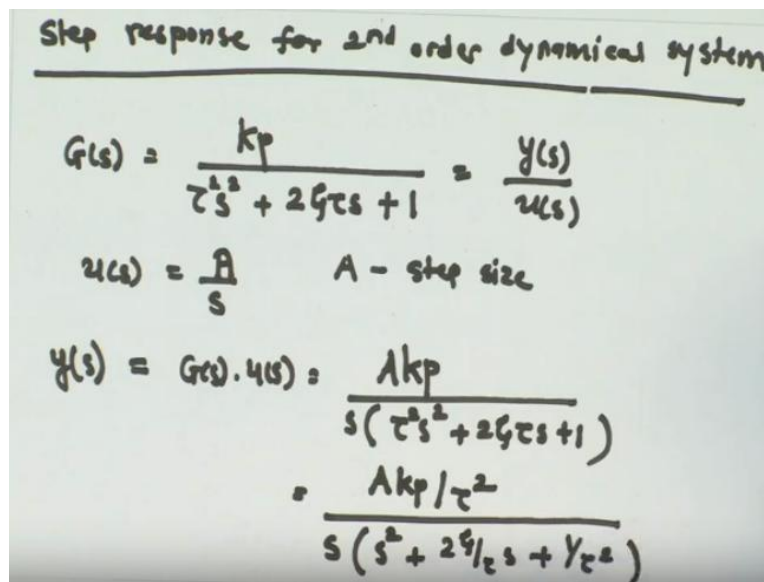 Step response for 2nd order dynamical system
G(s) = kp / (τ²s² + 2ξτs + 1) = y(s) / u(s)
u(s) = A / s    A - step size
y(s) = G(s).u(s) = Akp / s(τ²s² + 2ξτs + 1)
= Akp/τ² / s(s² + 2ξ/τ s + 1/τ²)